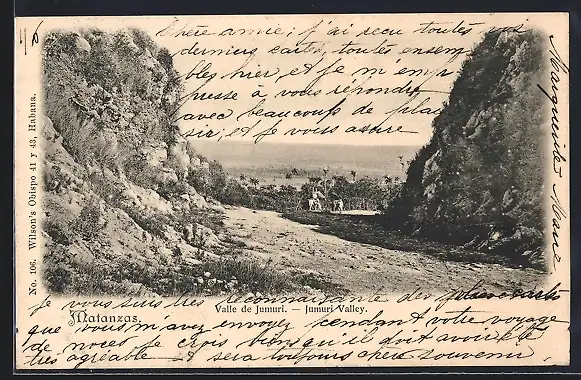 Chère amie; j'ai reçu toutes vos
derniers cartes, toutes ensem
bles hier, et je m'em
presse à vous repondre
avec beaucoup de plai
sir, et je vous assure
Marguerite
No. 106. Wilson's Obispo 41 y 43, Habana.
Valle de Jumuri. — Jumuri Valley.
Matanzas.
je vous suis très reconnaissante des jolies cartes
que vous m'avez envoyez pendant votre voyage
de noces je crois bien qu'il doit avoir été
très agréable et sera toujours chers souvenir